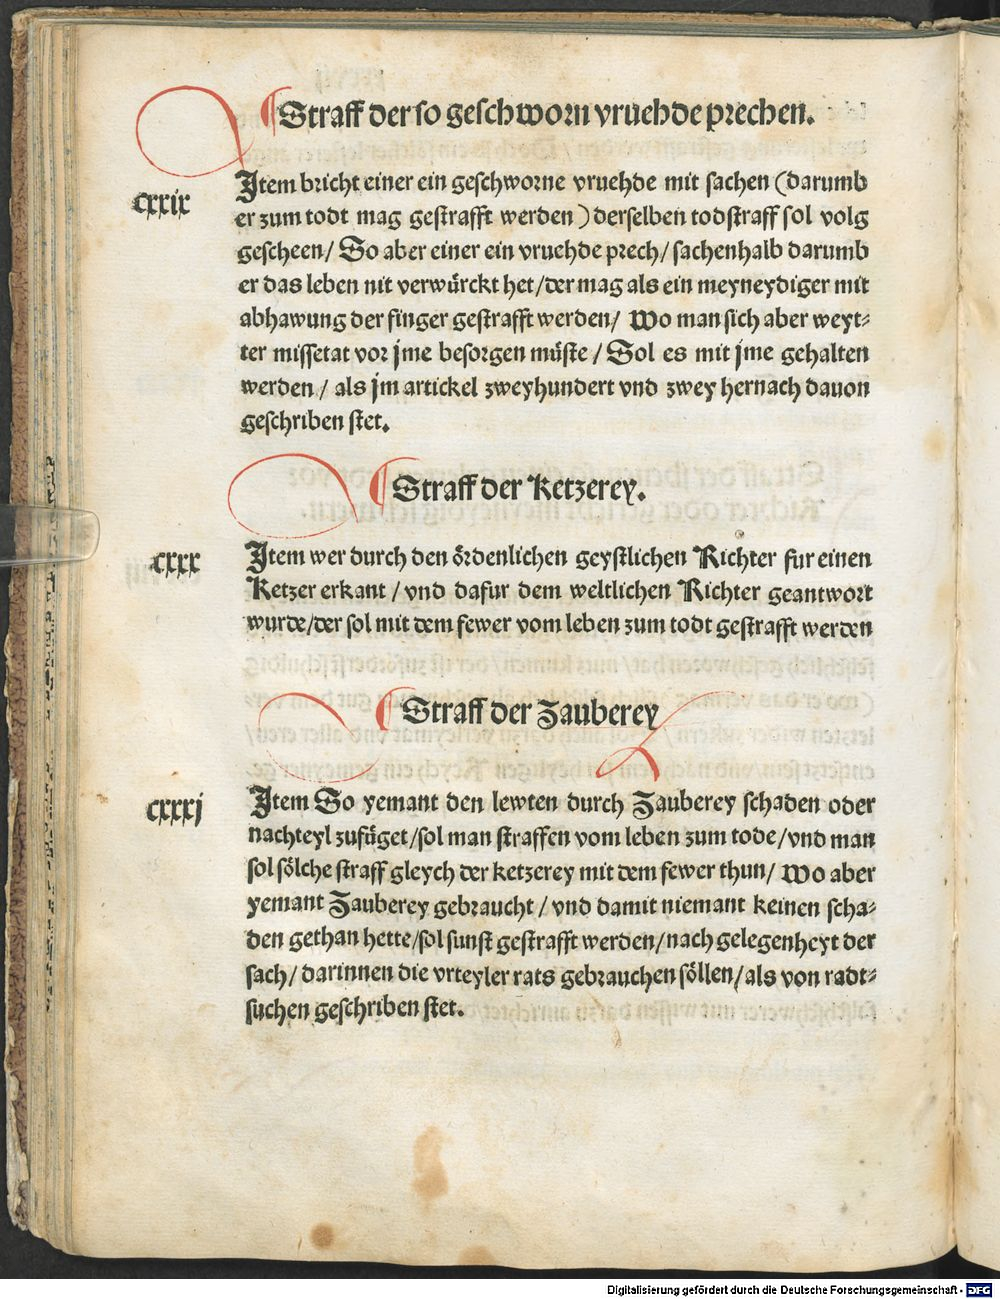 Straff der so geschworn vruehde prechen.
cxxix
Item bricht einer ein geschworne vruehde mit sachen (darumb
er zum todt mag gestrafft werden) derselben todstraff sol volg
gescheen/ So aber einer ein vruehde prech/ sachenhalb darumb
er das leben nit verwürckt het/der mag als ein meyneydiger mit
abhawung der finger gestrafft werden/ Wo man sich aber weyt-
ter missetat vor jme besorgen müste/ Sol es mit jme gehalten
werden/ als jm artickel zweyhundert vnd zwey hernach dauon
geschriben stet.
Straff der Ketzerey.
cxxx
Item wer durch den ördenlichen geystlichen Richter fur einen
Ketzer erkant/vnd dafur dem weltlichen Richter geantwort
wurde/der sol mit dem fewer vom leben zum todt gestrafft werden
Straff der Zauberey
cxxxj
Item So yemant den lewten durch Zauberey schaden oder
nachteyl zufüget/sol man straffen vom leben zum tode/vnd man
sol sölche straff gleych der ketzerey mit dem fewer thun/ Wo aber
yemant Zauberey gebraucht/vnd damit niemant keinen scha-
den gethan hette/sol sunst gestrafft werden/nach gelegenheyt der
sach/ darinnen die vrteyler rats gebrauchen söllen/als von radt-
suchen geschriben stet.
Digitalisierung gefördert durch die Deutsche Forschungsgemeinschaft - DFG